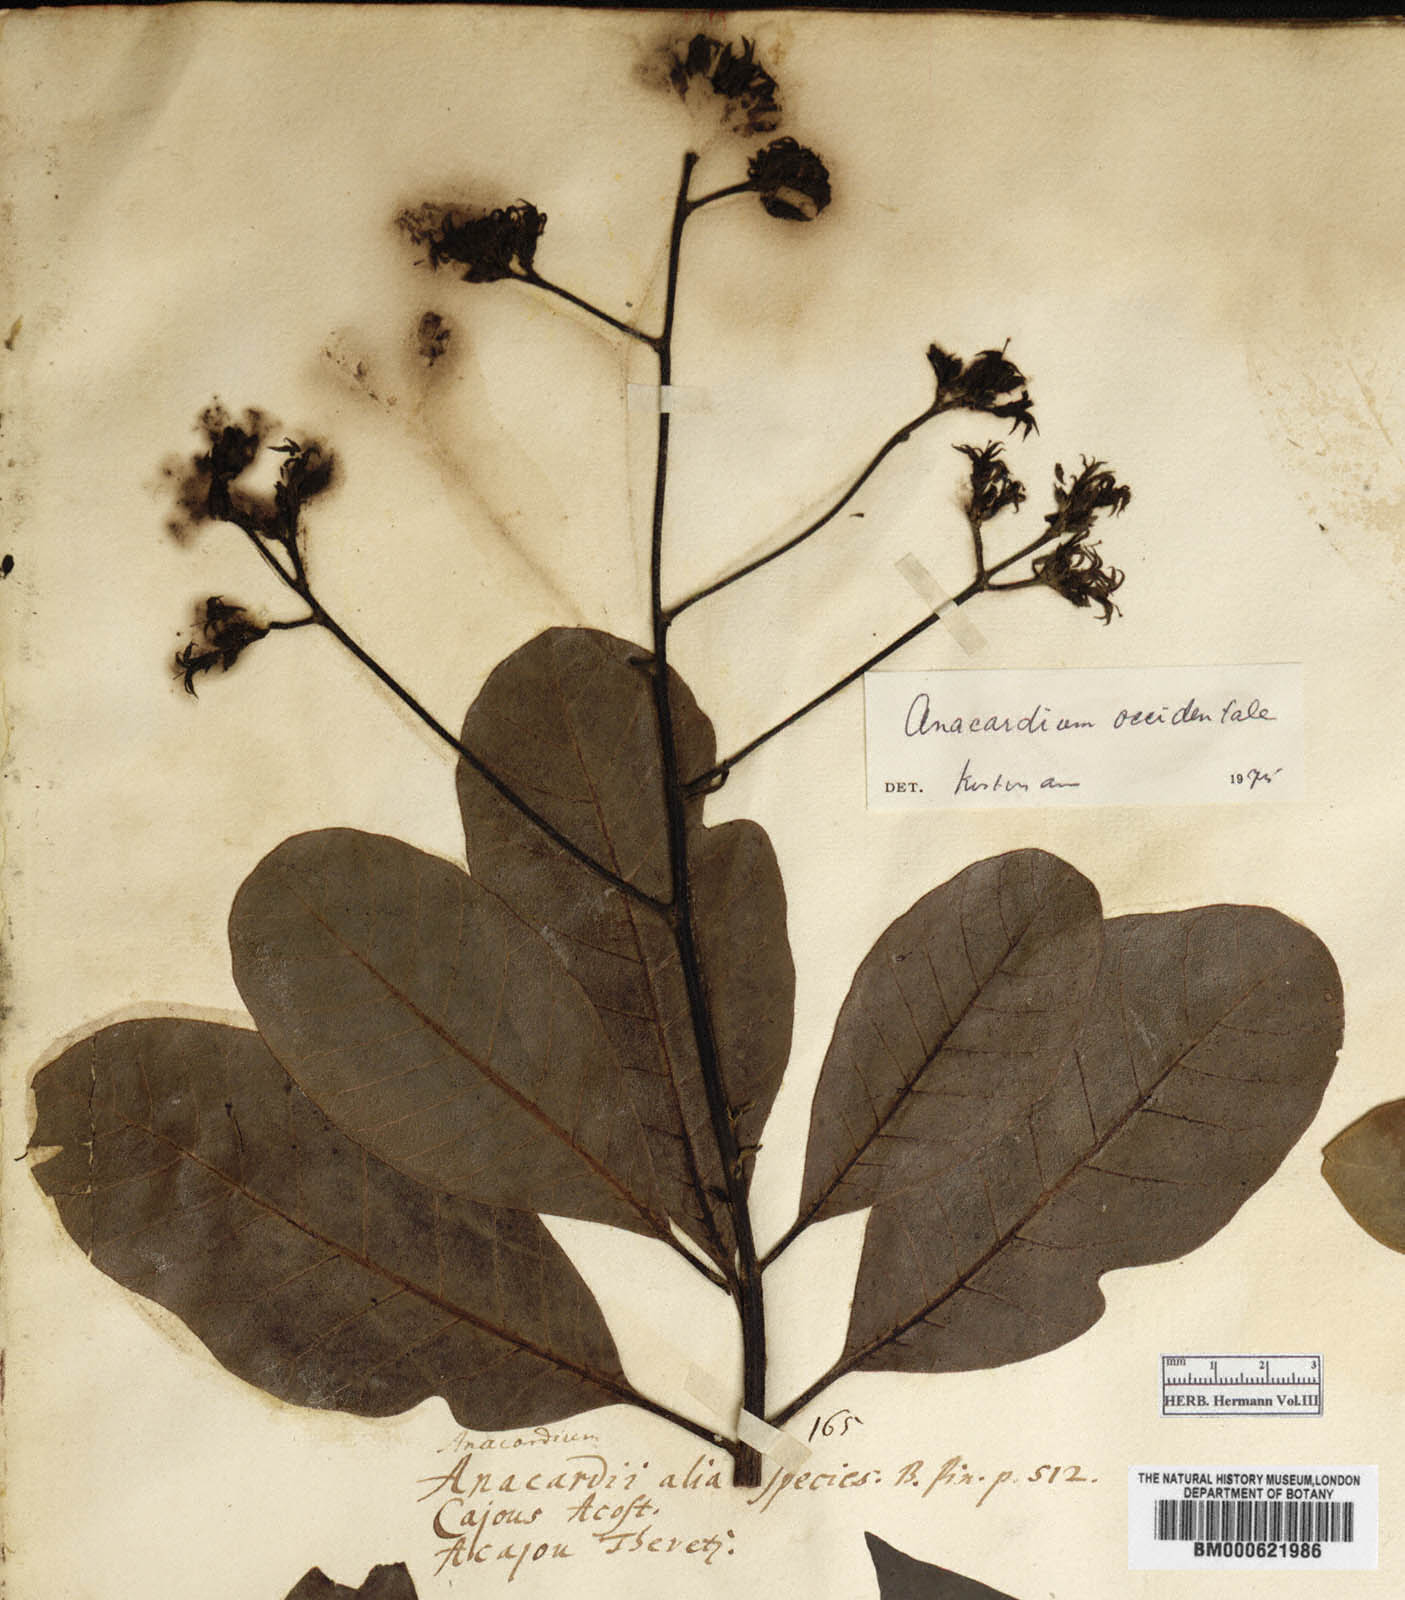 Anacardium occidentale
DET. Kosterman 1975
mm 1 2 3
HERB. Hermann Vol.III
165
Anacardium
Anacardii alia species. B. pin. p. 512.
Cajous Acost.
Acajou Thevetj.
THE NATURAL HISTORY MUSEUM, LONDON
DEPARTMENT OF BOTANY
BM000621986